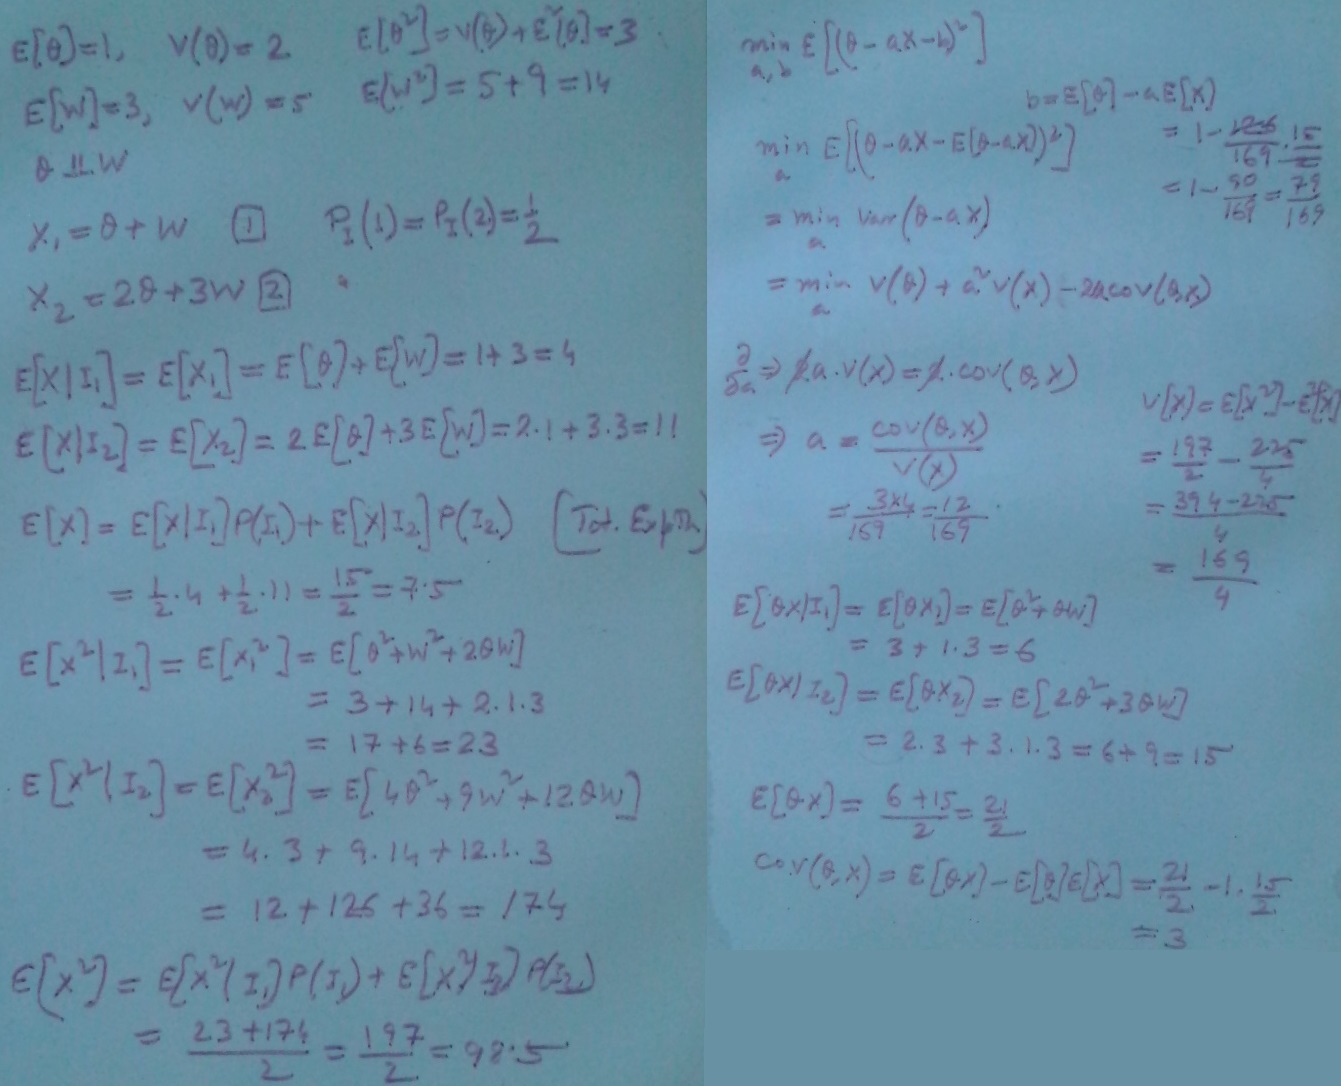 E[θ]=1, V(θ)=2 E[θ²]=V(θ)+E²[θ]=3
E[W]=3, V(W)=5 E[W²]=5+9=14
θ ⫫ W
X₁=θ+W [1] P_I(1)=P_I(2)=1/2
X₂=2θ+3W [2]
E[X|I₁]=E[X₁]=E[θ]+E[W]=1+3=4
E[X|I₂]=E[X₂]=2E[θ]+3E[W]=2·1+3·3=11
E[X]=E[X|I₁]P(I₁)+E[X|I₂]P(I₂) [Tot. Exp Th]
=1/2·4+1/2·11=15/2=7·5
E[X²|I₁]=E[X₁²]=E[θ²+W²+2θW]
=3+14+2·1·3
=17+6=23
E[X²|I₂]=E[X₂²]=E[4θ²+9W²+12θW]
=4·3+9·14+12·1·3
=12+126+36=174
E[X²]=E[X²|I₁]P(I₁)+E[X²|I₂]P(I₂)
=(23+174)/2=197/2=98·5
min a,b E[(θ-aX-b)²]
b=E[θ]-aE[X]
=1-12/169·15/2
=1-90/169=79/169
min a E[(θ-aX-E(θ-aX))²]
=min a Var(θ-aX)
=min a V(θ)+a²V(X)-2aCOV(θ,X)
∂/∂a ⇒ 2a·V(X)=2·COV(θ,X)
⇒ a=COV(θ,X)/V(X)
=3×4/169=12/169
V[X]=E[X²]-E²[X]
=197/2-225/4
=(394-225)/4
=169/4
E[θX|I₁]=E[θX₁]=E[θ²+θW]
=3+1·3=6
E[θX|I₂]=E[θX₂]=E[2θ²+3θW]
=2·3+3·1·3=6+9=15
E[θX]=(6+15)/2=21/2
COV(θ,X)=E[θX]-E[θ]E[X]=21/2-1·15/2
=3